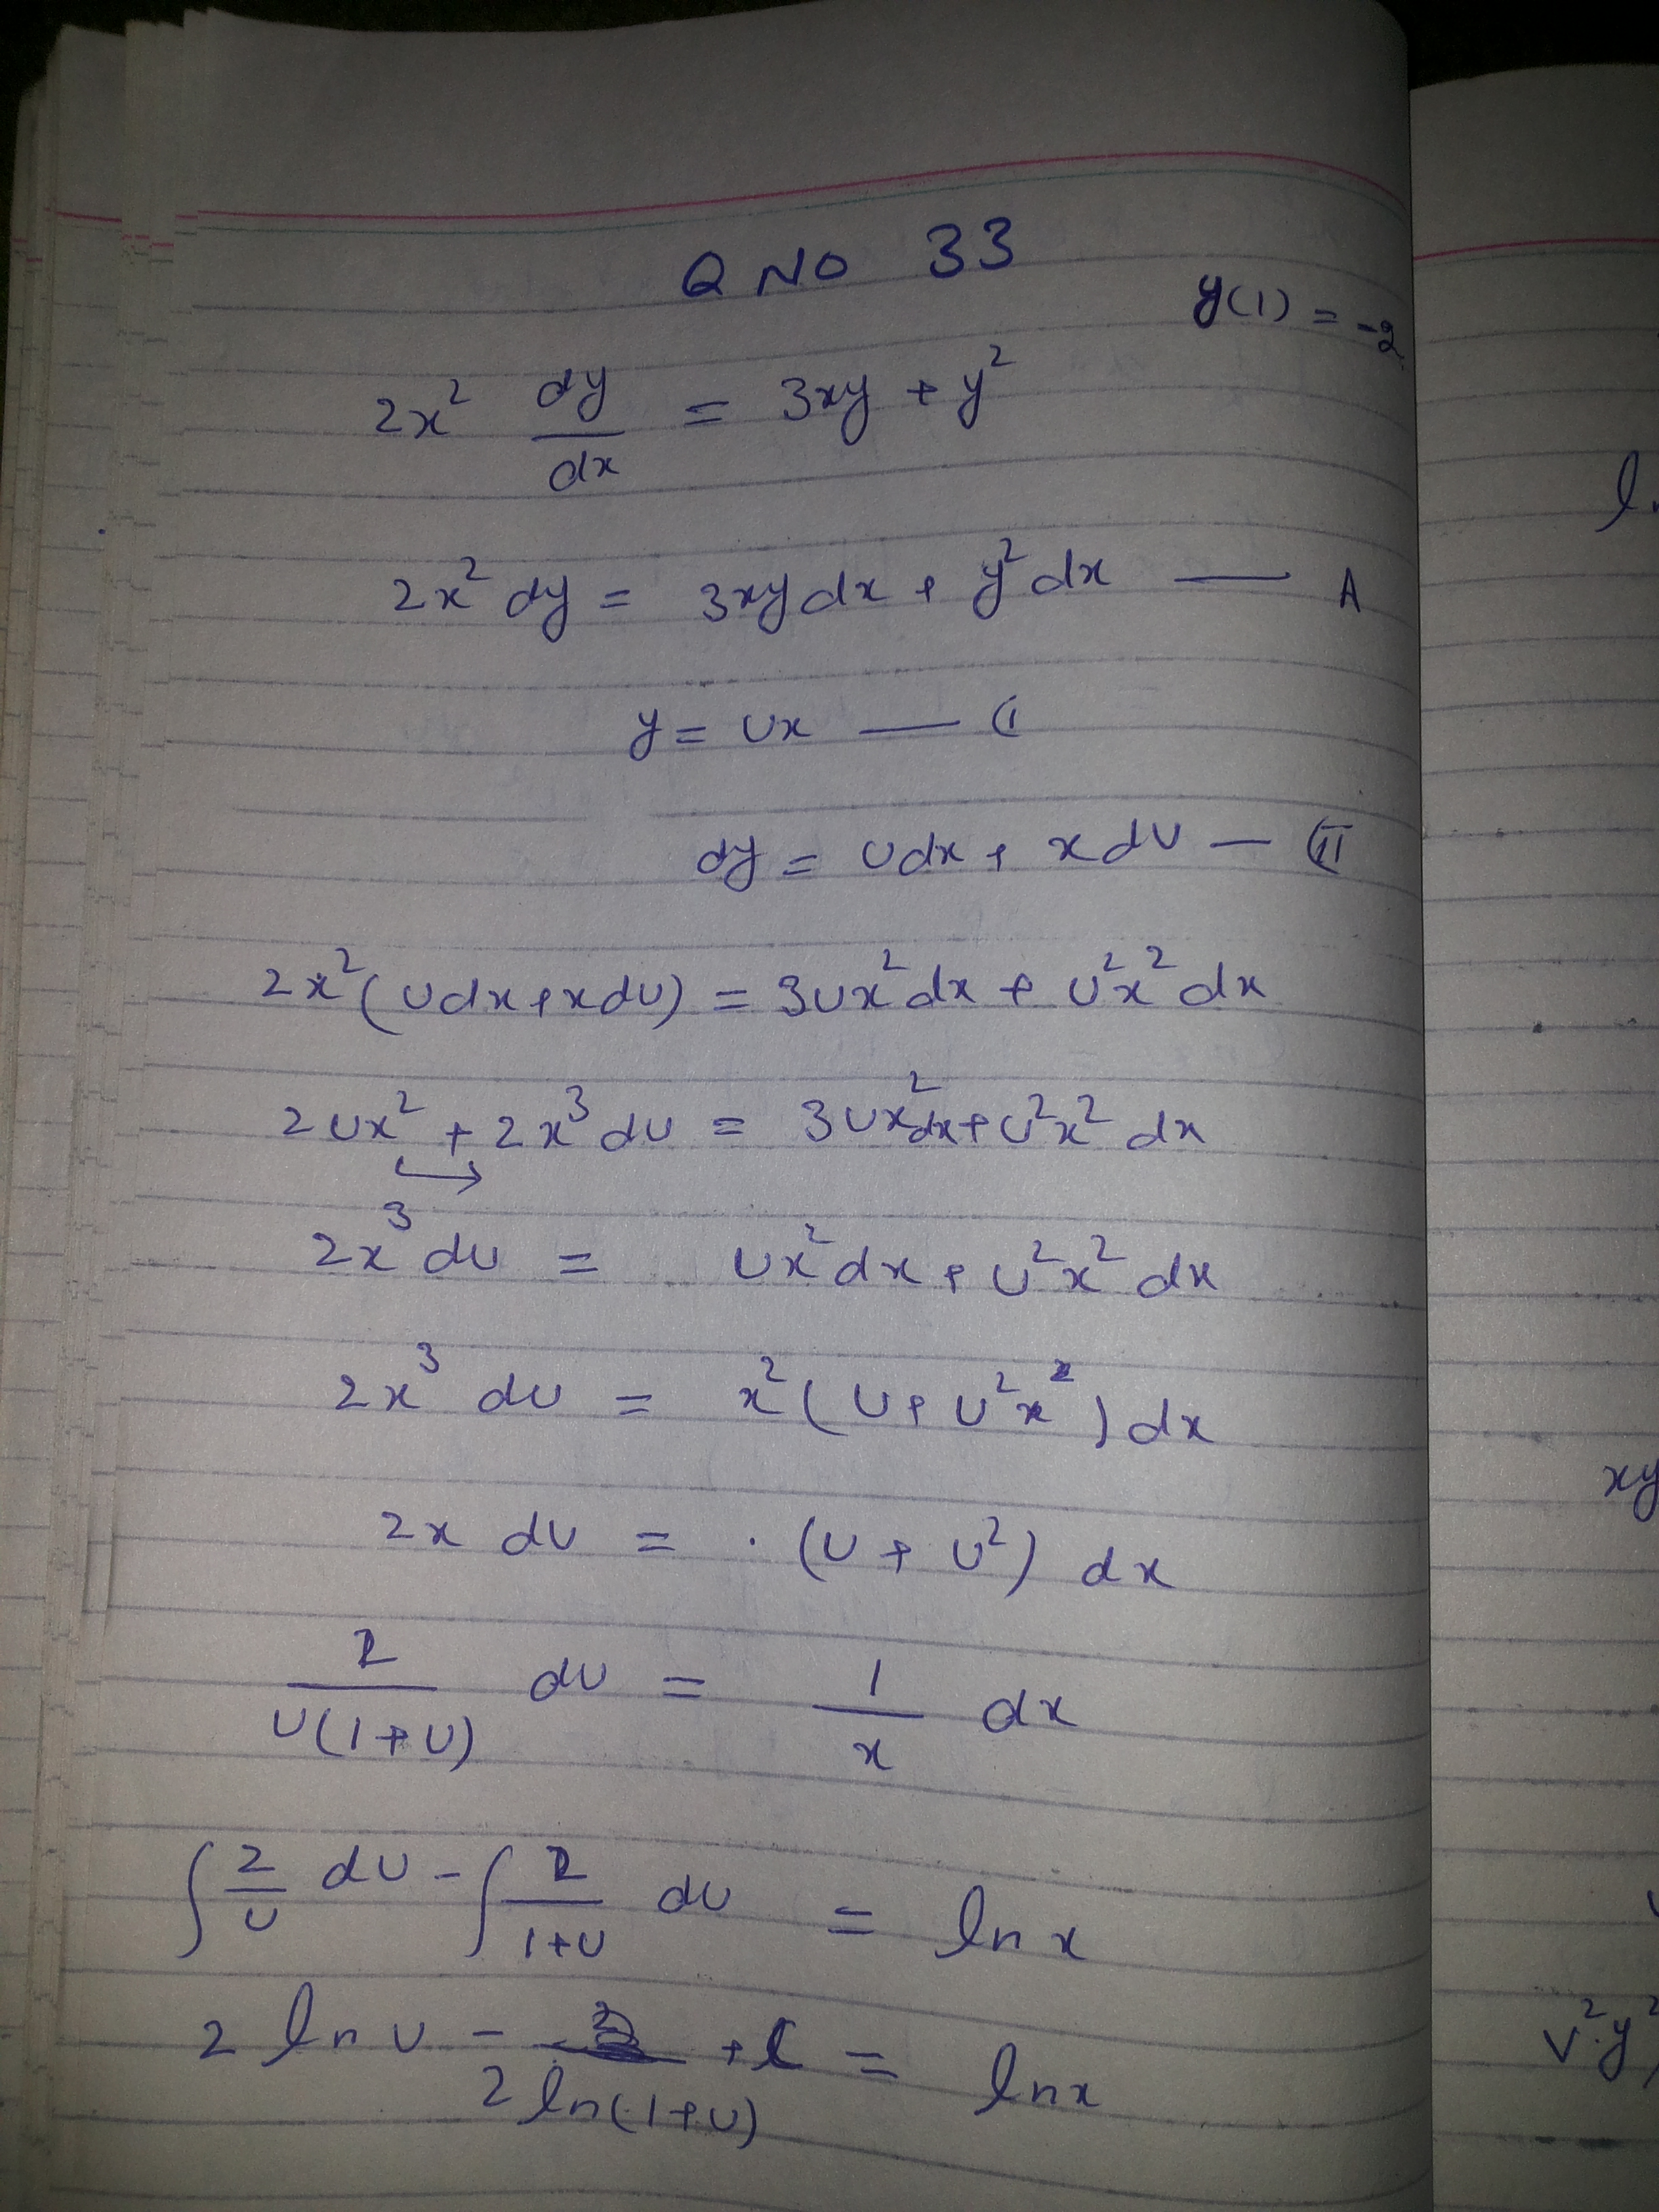 Q NO 33
y(1) = -2
2x² dy/dx = 3xy + y²
2x² dy = 3xy dx + y² dx — A
y = Ux — (I
dy = U dx + x dU — (II
2x² (U dx + x dU) = 3Ux² dx + U²x² dx
2Ux² + 2x³ dU = 3Ux² dx + U²x² dx
2x³ dU = Ux² dx + U²x² dx
2x³ dU = x² (U + U²x²) dx
2x dU = . (U + U²) dx
2/U(1+U) dU = 1/x dx
∫ 2/U dU - ∫ 2/1+U dU = ln x
2 ln U - 2 ln(1+U) + C = ln x
xy
v² y²